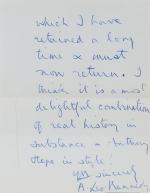 which I have
retained a long
time & must
now return. I
think it is a most
delightful combination
of real history in
substance & Anthony
Hope in style!
Yrs sincerely
A.